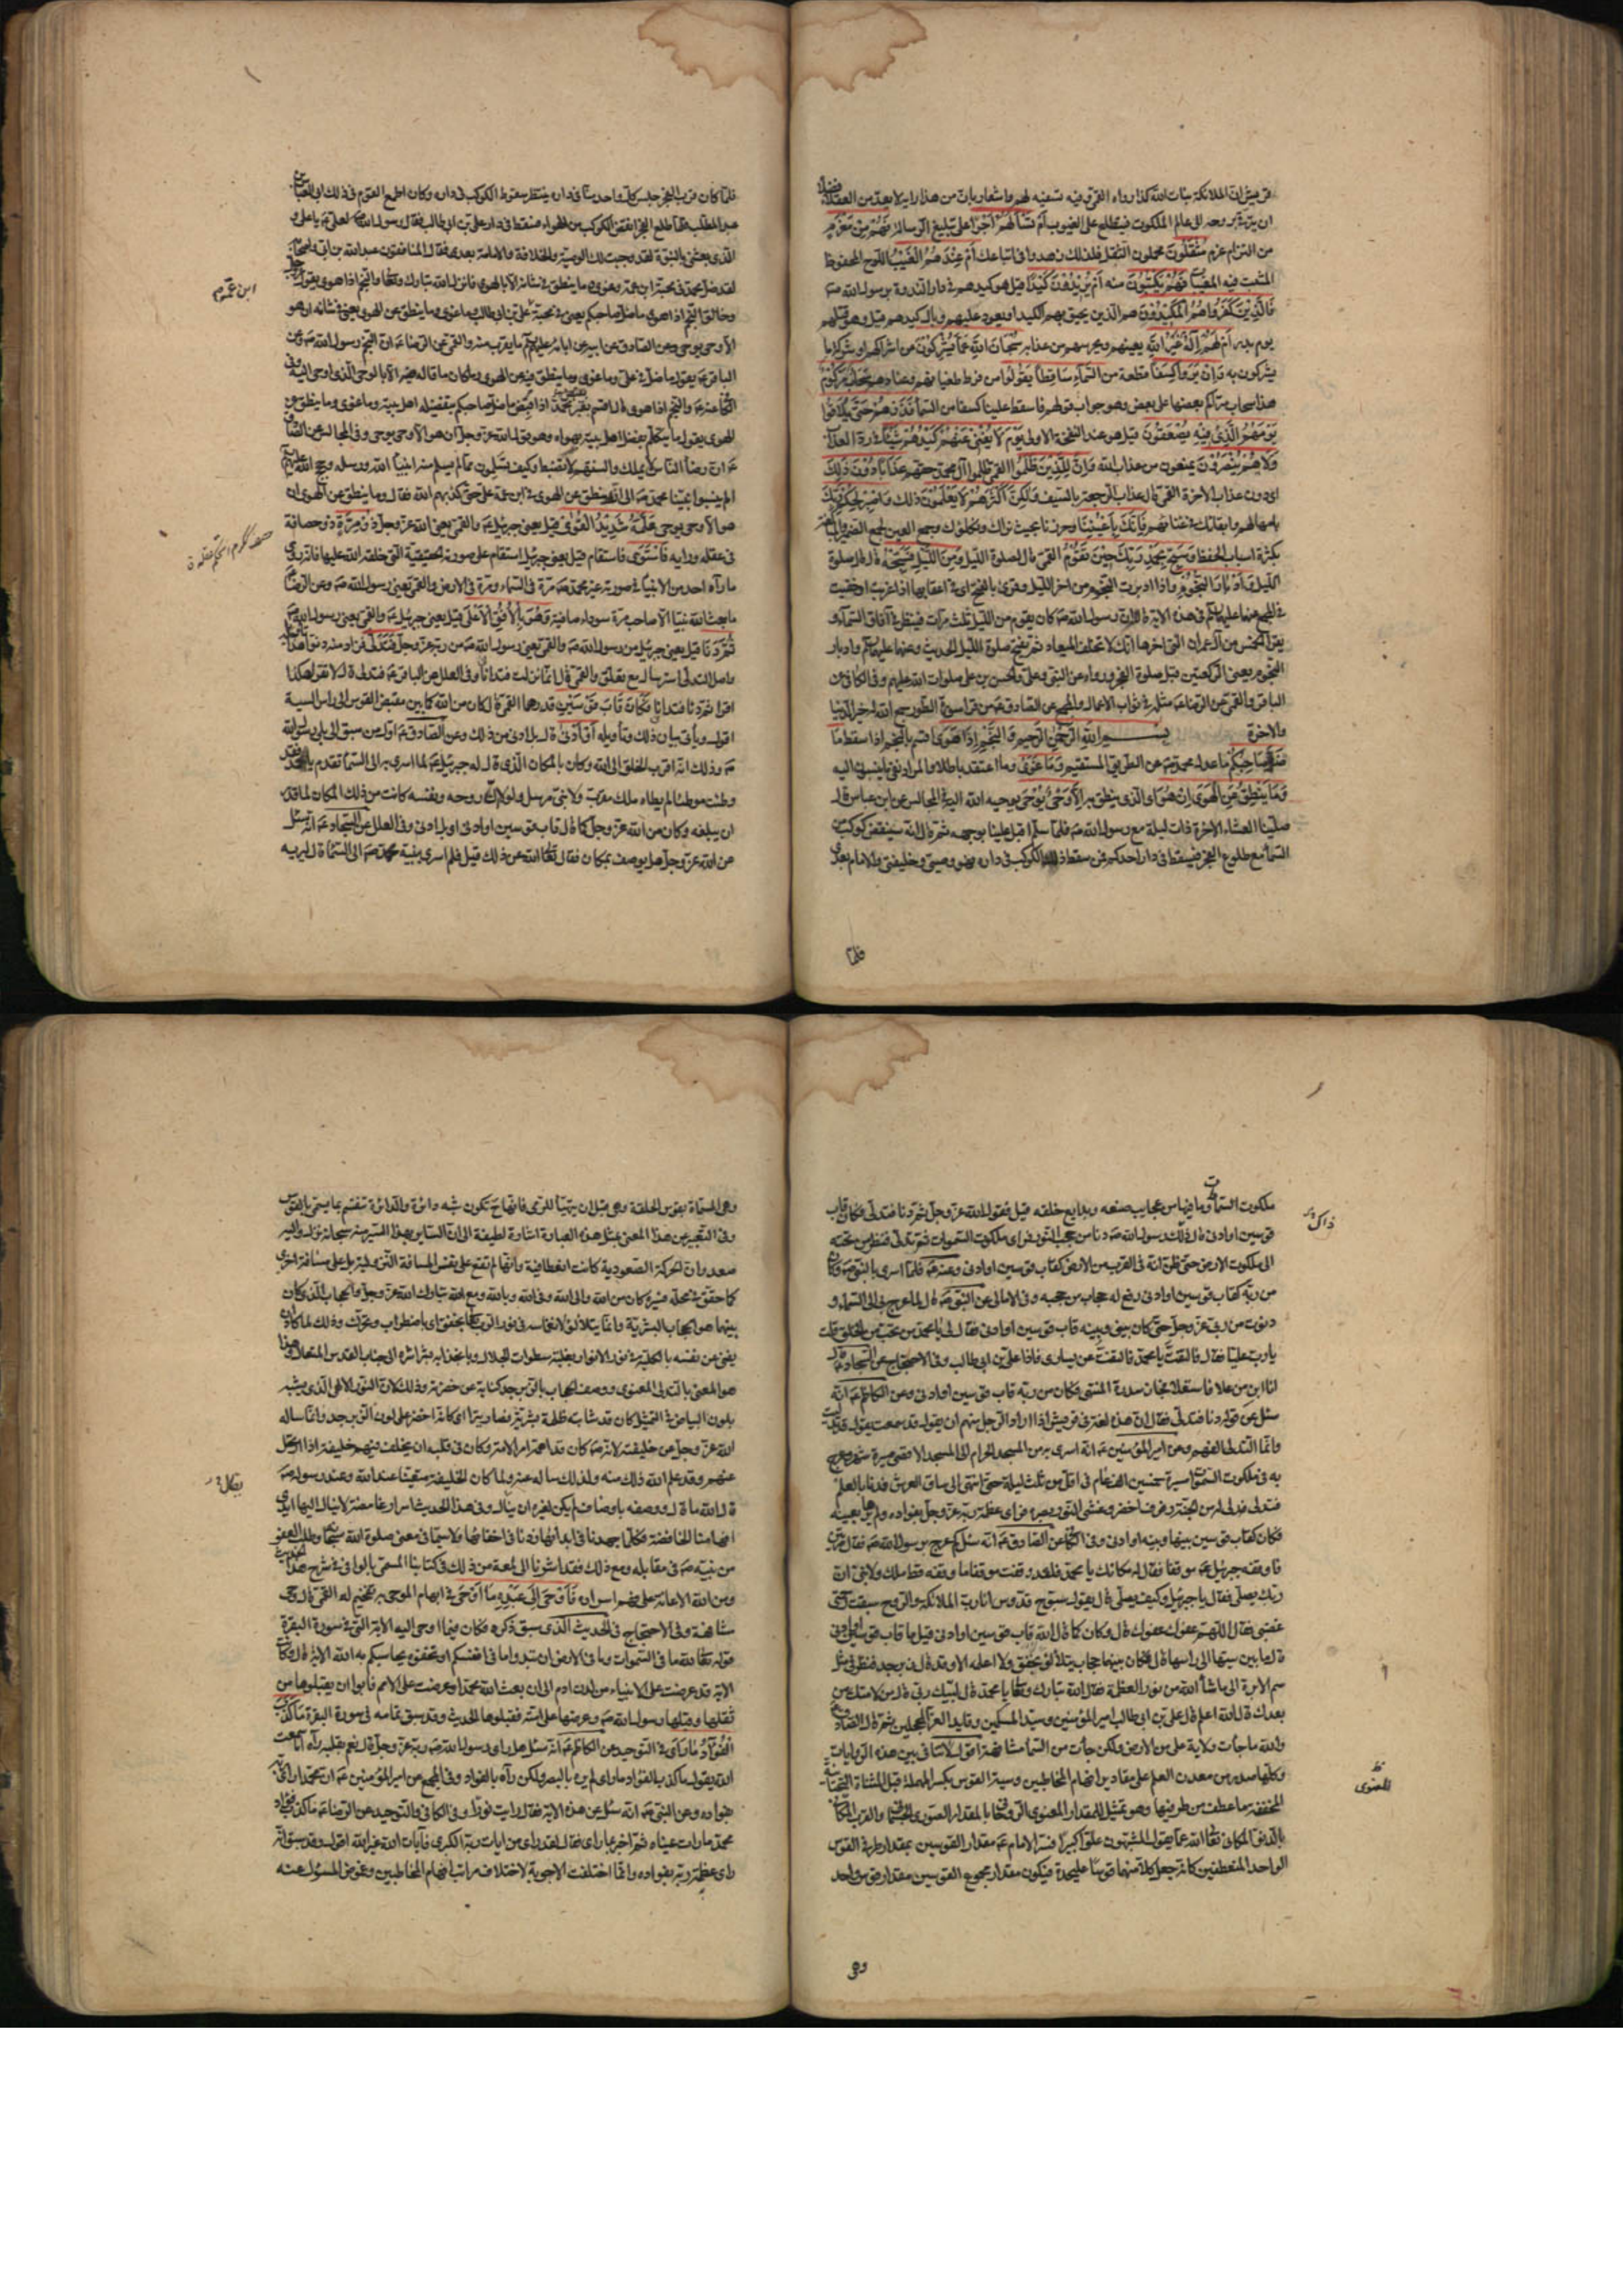 قريش ان الملائكة بنات الله كذا رواه القمي وفيه تسفيه لهم واشعار بان من هذا رايه لا يعد من العقلاء فضلا
ان يترقى بروحه الى عالم الملكوت فيطلع على الغيوب أم تسألهم أجرا على تبليغ الرسالة فهم من مغرم
من التزام غرم مثقلون محملون الثقل فلذلك زهدوا في اتباعك أم عندهم الغيب اللوح المحفوظ
المثبت فيه المغيبات فهم يكتبون منه أم يريدون كيدا قيل هو كيدهم في دار الندوة برسول الله ص
فالذين كفروا هم المكيدون هم الذين يحيق بهم الكيد او يعود عليهم وبال كيدهم قيل وهو قتلهم
يوم بدر أم لهم إله غير الله يعينهم ويحرسهم من عذابه سبحان الله عما يشركون عن اشراكهم او شركة ما
يشركونه به وإن يروا كسفا قطعة من السماء ساقطا يقولوا من فرط طغيانهم وعنادهم سحاب مركوم
هذا سحاب تراكم بعضها على بعض وهو جواب قولهم فاسقط علينا كسفا من السماء فذرهم حتى يلاقوا
يومهم الذي فيه يصعقون قيل هو عند النفخة الاولى يوم لا يغني عنهم كيدهم شيئا في رد العذاب
ولا هم ينصرون يمنعون من عذاب الله وإن للذين ظلموا القمي ظلموا آل محمد حقهم عذابا دون ذلك
اي دون عذاب الاخرة القمي قال عذاب الرجعة بالسيف ولكن أكثرهم لا يعلمون ذلك واصبر لحكم ربك
بامهالهم وابقائك في عنائهم فإنك بأعيننا وحرزنا بحيث نراك ونكلؤك وجمع العين لجمع الضمير والمبالغة
بكثرة اسباب الحفظ وسبح بحمد ربك حين تقوم القمي قال لصلوة الليل ومن الليل فسبحه قال صلوة
الليل وإدبار النجوم واذا ادبرت النجوم من اخر الليل وقرئ بالفتح اي في اعقابها اذا غربت او خفيت
في المجمع عنهما عليهما السلم في هذه الاية قالا ان رسول الله ص كان يقوم من الليل ثلث مرات فينظر في آفاق السماء و
يقرا الخمس من آل عمران التي اخرها انك لا تخلف الميعاد ثم يفتح صلوة الليل الحديث وعنهما عليهما السلم وادبار
النجوم يعني الركعتين قبل صلوة الفجر ورواه عن النبي وعلي والحسن بن علي صلوات الله عليهم وفي الكافي عن
الباقر والقمي عن الرضا ع مثله في ثواب الاعمال والمجمع عن الصادق ع من قرا سورة الطور جمع الله له خير الدنيا
والاخرة بسم الله الرحمن الرحيم والنجم إذا هوى اقسم بالنجم اذا سقط ما
ضل صاحبكم ما عدل محمد ص عن الطريق المستقيم وما غوى وما اعتقد باطلا والمراد نفي ما ينسبون اليه
وما ينطق عن الهوى إن هو ما الذي ينطق به إلا وحي يوحى يوحيه الله اليه في المجالس عن ابن عباس قال
صلينا العشاء الاخرة ذات ليلة مع رسول الله ص فلما سلم اقبل علينا بوجهه ثم قال انه سينقض كوكب من
السماء مع طلوع الفجر فيسقط في دار احدكم فمن سقط ذلك الكوكب في داره فهو وصيي وخليفتي والامام بعدي
فلما
فلما كان قرب الفجر جلس كل واحد منا في داره ينتظر سقوط الكوكب في داره وكان اطمع القوم في ذلك ابي العباس بن
عبد المطلب فلما طلع الفجر انقض الكوكب من الهواء فسقط في دار علي بن ابي طالب فقال رسول الله ص لعلي ع يا علي و
الذي بعثني بالنبوة لقد وجبت لك الوصية والخلافة والامامة بعدي فقال المنافقون عبد الله بن ابي واصحابه
لقد ضل محمد في محبة ابن عمه وغوى وما ينطق في شانه الا بالهوى فانزل الله تبارك وتعالى والنجم اذا هوى يقول عز وجل
ابن عمه م
وخالق النجم اذا هوى ما ضل صاحبكم يعني في محبة علي بن ابي طالب وما غوى وما ينطق عن الهوى يعني في شانه ان هو
الا وحي يوحى وعن الصادق عن ابيه عن ابائه عليهم السلم ما يقرب منه والقمي عن الرضا ع ان النجم رسول الله ص وعن
الباقر ع يقول ما ضل في علي وما غوى وما ينطق فيه عن الهوى وما كان ما قاله فيه الا بالوحي الذي اوحي اليه وفي
الكافي عنه ع والنجم اذا هوى قال اقسم بقبر محمد اذا قبض ما ضل صاحبكم بتفضيله اهل بيته وما غوى وما ينطق عن
الهوى يقول ما يتكلم بفضل اهل بيته بهواه وهو قول الله عز وجل ان هو الا وحي يوحى وفي المجالس عن الصادق
ع ان رضا الناس لا يملك والسنتهم لا تضبط وكيف تسلمون مما لم يسلم منه انبياء الله ورسله وحجج الله عليهم السلم
الم ينسبوا نبينا محمد ص الى انه ينطق عن الهوى في ابن عمه علي حتى كذبهم الله فقال وما ينطق عن الهوى ان
هو الا وحي يوحى علمه شديد القوى قيل يعني جبرئيل ع والقمي يعني الله عز وجل ذو مرة ذو حصافة
في عقله ورايه فاستوى فاستقام قيل يعني جبرئيل استقام على صورته الحقيقية التي خلقه الله عليها فانه روي
ما رآه احد من الانبياء في صورته غير محمد ص مرة في السماء ومرة في الارض والقمي يعني رسول الله ص وعن الرضا ع
ما بعث الله نبيا الا صاحب مرة سوداء صافية وهو بالأفق الأعلى قيل يعني جبرئيل ع والقمي يعني رسول الله ص
ثم دنا قيل يعني جبرئيل من رسول الله ص والقمي يعني رسول الله ص من ربه عز وجل فتدلى فزاد منه دنوا هذا تاويله
واصل التدلي استرسال مع تعلق والقمي قال انما نزلت فتدانا وفي العلل عن الباقر ع فتدلى قال لا تقرا هكذا
اقرا ثم دنا فتدانا فكان قاب قوسين قدرهما القمي قال كان من الله كما بين مقبض القوس الى راس السية
اقول وياتي بيان ذلك وتاويله أو أدنى قال بل ادنى من ذلك وعن الصادق ع اول من سبق الى بلى رسول الله
ص وذلك انه اقرب الخلق الى الله وكان بالمكان الذي قال له جبرئيل ع لما اسري به الى السماء تقدم يا محمد فقد
وطئت موطئا لم يطاه ملك مقرب ولا نبي مرسل ولولا ان روحه ونفسه كانت من ذلك المكان لما قدر
ان يبلغه وكان من الله عز وجل كما قال قاب قوسين او ادنى اي بل ادنى وفي العلل عن السجاد ع انه سئل
عن الله عز وجل هل يوصف بمكان فقال تعالى الله عن ذلك قيل فلم اسرى بنبيه محمد ص الى السماء قال ليريه
ملكوت السموات وما فيها من عجايب صنعه وبدايع خلقه قيل فقول الله عز وجل ثم دنا فتدلى فكان قاب
قوسين او ادنى قال ذلك رسول الله ص دنا من حجب النور فراى ملكوت السموات ثم تدلى فنظر من تحته
ذاك
الى ملكوت الارض حتى ظن انه في القرب من الارض كقاب قوسين او ادنى وعنه ع فلما اسري بالنبي ص وكان
من ربه كقاب قوسين او ادنى رفع له حجاب من حجبه وفي الامالي عن النبي ص قال لما عرج بي الى السماء و
دنوت من ربي عز وجل حتى كان بيني وبينه قاب قوسين او ادنى فقال لي يا محمد من تحب من الخلق قلت
يا رب عليا فقال فالتفت يا محمد فالتفت عن يساري فاذا علي بن ابي طالب وفي الاحتجاج عن السجاد ع قال
انا ابن من علا فاستعلا فجاز سدرة المنتهى فكان من ربه قاب قوسين او ادنى وعن الكاظم ع انه
سئل عن قوله دنا فتدلى فقال ان هذه لغة في قريش اذا اراد الرجل منهم ان يقول قد سمعت يقول قد تدليت
وانما التدلي الفهم وعن امير المؤمنين ع انه اسري به من المسجد الحرام الى المسجد الاقصى مسيرة شهر وعرج
به في ملكوت السموات مسيرة خمسين الف عام في اقل من ثلث ليلة حتى انتهى الى ساق العرش فدنا بالعلم
فتدلى فدلي له من الجنة رفرف اخضر وغشي النور بصره فراى عظمة ربه عز وجل بفؤاده ولم يرها بعينه
فكان كقاب قوسين بينها وبينه او ادنى وفي الكافي عن الصادق ع انه سئل كم عرج برسول الله ص فقال مرتين
فاوقفه جبرئيل ع موقفا فقال له مكانك يا محمد فلقد وقفت موقفا ما وقفه قط ملك ولا نبي ان
ربك يصلي فقال يا جبرئيل وكيف يصلي قال يقول سبوح قدوس انا رب الملائكة والروح سبقت رحمتي
غضبي فقال اللهم عفوك عفوك قال وكان كما قال الله قاب قوسين او ادنى قيل ما قاب قوسين او ادنى
قال ما بين سيتها الى راسها قال فكان بينهما حجاب يتلألؤ يخفق ولا اعلمه الا وقد قال زبرجد فنظر في مثل
سم الابرة الى ما شاء الله من نور العظمة فقال الله تبارك وتعالى يا محمد قال لبيك ربي قال من لامتك من
بعدك قال الله اعلم قال علي بن ابي طالب امير المؤمنين وسيد المسلمين وقايد الغر المحجلين ثم قال الصادق ع
والله ما جاءت ولاية علي من الارض ولكن جاءت من السماء مشافهة اقول لا تنافي بين هذه الروايات
وكلها صدر من معدن العلم على مقادير افهام المخاطبين وسية القوس بكسر المهملة قبل المثناة التحتانية
المخففة ما عطف من طرفيها وهو تمثيل للمقدار المعنوي الروحاني بالمقدار الصوري الجسماني والقرب المكاني
للمعنوي
بالدنو المكاني تعالى الله عما يقول المشبهون علوا كبيرا فسر الامام ع مقدار القوسين بمقدار طرفي القوس
الواحد المنعطفين كانه جعل كلا منهما قوسا على حدة فيكون مقدار مجموع القوسين مقدار قوس واحد
وهي
وهي المسماة بقوس الحلقة وهي قبل ان يتهيا للرمي فانها ح تكون شبه دائرة والدائرة تنقسم بما يسمى بالقوس
وفي التعبير عن هذا المعنى بمثل هذه العبارة اشارة لطيفة الى ان السائر بهذا السير منه سبحانه نزل واليه
صعد وان الحركة الصعودية كانت انعطافية وانها لم تقع على نفس المسافة النزولية بل على مسافة اخرى
كما حقق في محله فسيره كان من الله والى الله وفي الله وبالله ومع الله تبارك الله عز وجل والحجاب الذي كان
بينهما هو الحجاب البشرية وانما يتلالؤ لانغماسه في نور الرب تعالى يخفق اي باضطراب وتحرك وذلك لما كاد ان
يفنى عن نفسه بالكلية في نور الانوار بغلبة سطوات الجلال وبانجذابه بشراشره الى جناب القدس المتعال وهذا
هو المعنى بالتدلي المعنوي ووصف الحجاب بالزبرجد كناية عن خضرته وذلك لان النور الالهي الذي يشبه
بلون البياض في التمثيل كان قد شابته ظلمة بشرية فصار يتراءى كانه اخضر على لون الزبرجد وانما ساله
الله عز وجل عن خليفته لانه ص كان قد اهمه امر الامة وكان في قلبه ان يخلف فيهم خليفة اذا ارتحل
عنهم وقد علم الله ذلك منه ولذلك ساله عنه ولما كان الخليفة متعينا عند الله وعند رسوله ص
قال الله ما قال ووصفه باوصاف لم يكن لغيره ان ينال وفي هذا الحديث اسرار غامضة لا ينال اليها ايدي
افهامنا الخافضة فكلما جهدنا في ابدائها زدنا في اخفائها ولا سيما في معنى صلوة الله سبحانه وطلب العفو
من نبيه ص في مقابله ومع ذلك فقد اشرنا الى لمعة من ذلك في كتابنا المسمى بالوافي في شرح هذا الحديث
ومن الله الاعانة على فهم اسراره فأوحى إلى عبده ما أوحى في ابهام الموحى به تفخيم له القمي قال وحي
مشافهة وفي الاحتجاج في الحديث الذي سبق ذكره فكان فيما اوحى اليه الاية التي في سورة البقرة
قوله تعالى لله ما في السموات وما في الارض ان تبدوا ما في انفسكم او تخفوه يحاسبكم به الله الاية قال وكانت
الاية قد عرضت على الانبياء من لدن ادم الى ان بعث الله محمدا وعرضت على الامم فابوا ان يقبلوها من
ثقلها وقبلها رسول الله ص وعرضها على امته فقبلوها الحديث وقد سبق تمامه في سورة البقرة ما كذب
الفؤاد ما رأى في التوحيد عن الكاظم ع انه سئل هل راى رسول الله ص ربه عز وجل قال نعم بقلبه رآه اما سمعت
الله يقول ما كذب الفؤاد ما راى لم يره بالبصر ولكن رآه بالفؤاد وفي المجمع عن امير المؤمنين ع ان محمدا راى ربه
بفؤاده وعن النبي ص انه سئل عن هذه الاية فقال رايت نورا وفي الكافي والتوحيد عن الرضا ع ما كذب فؤاد
محمد ما رات عيناه ثم اخبر بما راى فقال لقد راى من ايات ربه الكبرى فآيات الله غير الله اقول وقد سبق انه
راى عظمة ربه بفؤاده وانما اختلفت الاجوبة لاختلاف مراتب افهام المخاطبين وغموض المسؤل عنه